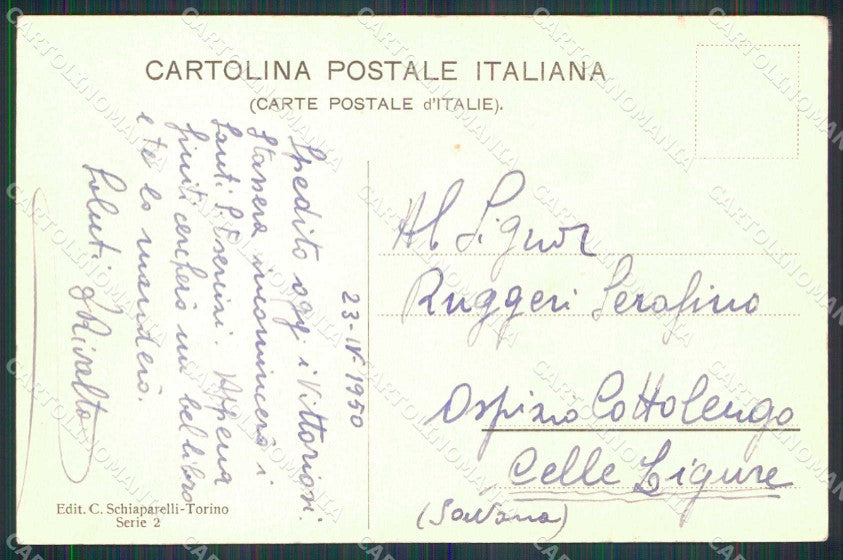 CARTOLINA POSTALE ITALIANA
(CARTE POSTALE d'ITALIE).
23-IV-1950
Spedito oggi i Vittoriosi.
Stassera incomincerò i
Santi S. Esercizi. Appena
finiti cercherò un bel libro
e te lo manderò.
Saluti g Rivalta
Al Signor
Ruggeri Serafino
Ospizio Cottolengo
Celle Ligure
(Savona)
Edit. C. Schiaparelli-Torino
Serie 2
CARTOLINOMANIA